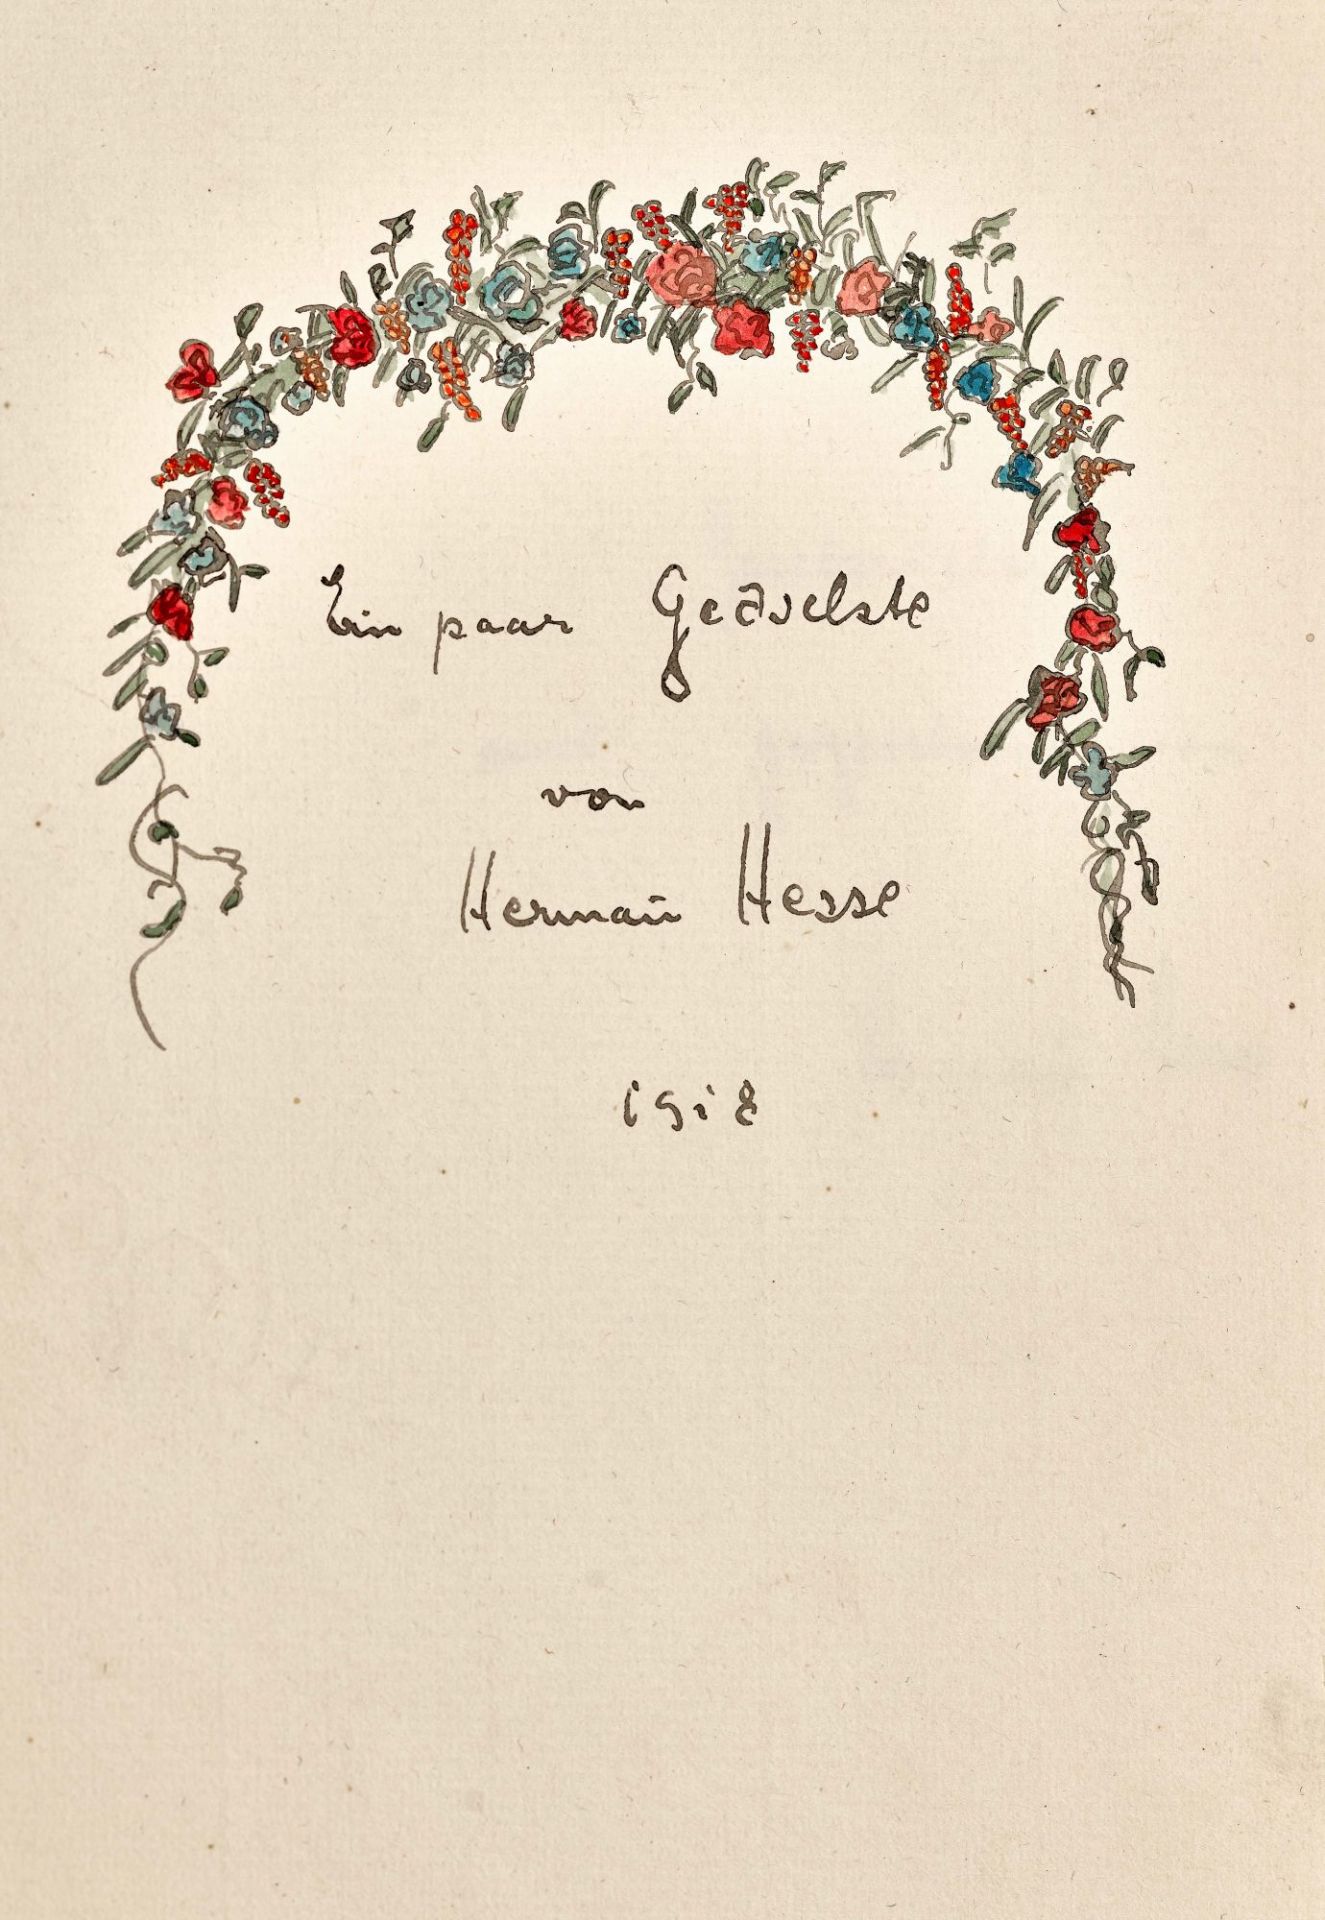 Ein paar Gedichte
von
Herman̄ Hesse
1918